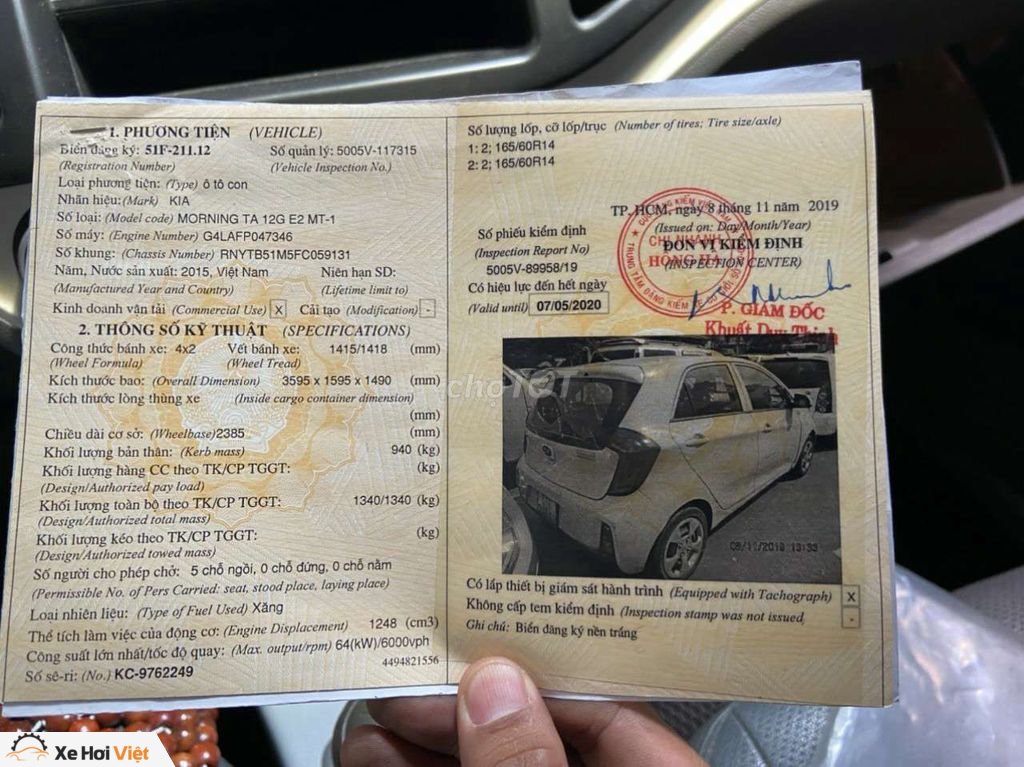 1. PHƯƠNG TIỆN (VEHICLE)
Biển đăng ký: 51F-211.12 Số quản lý: 5005V-117315
(Registration Number) (Vehicle Inspection No.)
Loại phương tiện: (Type) ô tô con
Nhãn hiệu: (Mark) KIA
Số loại: (Model code) MORNING TA 12G E2 MT-1
Số máy: (Engine Number) G4LAFP047346
Số khung: (Chassis Number) RNYTB51M5FC059131
Năm, Nước sản xuất: 2015, Việt Nam Niên hạn SD:
(Manufactured Year and Country) (Lifetime limit to)
Kinh doanh vận tải (Commercial Use) X Cải tạo (Modification) -
2. THÔNG SỐ KỸ THUẬT (SPECIFICATIONS)
Công thức bánh xe: 4x2 Vết bánh xe: 1415/1418 (mm)
(Wheel Formula) (Wheel Tread)
Kích thước bao: (Overall Dimension) 3595 x 1595 x 1490 (mm)
Kích thước lòng thùng xe (Inside cargo container dimension)
(mm)
Chiều dài cơ sở: (Wheelbase) 2385 (mm)
Khối lượng bản thân: (Kerb mass) 940 (kg)
Khối lượng hàng CC theo TK/CP TGGT: (kg)
(Design/Authorized pay load)
Khối lượng toàn bộ theo TK/CP TGGT: 1340/1340 (kg)
(Design/Authorized total mass)
Khối lượng kéo theo TK/CP TGGT: (kg)
(Design/Authorized towed mass)
Số người cho phép chở: 5 chỗ ngồi, 0 chỗ đứng, 0 chỗ nằm
(Permissible No. of Pers Carried: seat, stood place, laying place)
Loại nhiên liệu: (Type of Fuel Used) Xăng
Thể tích làm việc của động cơ: (Engine Displacement) 1248 (cm3)
Công suất lớn nhất/tốc độ quay: (Max. output/rpm) 64(kW)/6000vph
4494821556
Số sê-ri: (No.) KC-9762249
Số lượng lốp, cỡ lốp/trục (Number of tires; Tire size/axle)
1: 2; 165/60R14
2: 2; 165/60R14
TP. HCM, ngày 8 tháng 11 năm 2019
(Issued on: Day/Month/Year)
Số phiếu kiểm định ĐƠN VỊ KIỂM ĐỊNH
(Inspection Report No) (INSPECTION CENTER)
5005V-89958/19
CHI NHÁNH
HỒNG HÀ
Có hiệu lực đến hết ngày
(Valid until) 07/05/2020
P. GIÁM ĐỐC
Khuất Duy Thịnh
chợTỐT
08/11/2019 13:35
Có lắp thiết bị giám sát hành trình (Equipped with Tachograph) X
Không cấp tem kiểm định (Inspection stamp was not issued) -
Ghi chú: Biển đăng ký nền trắng
Xe Hơi Việt